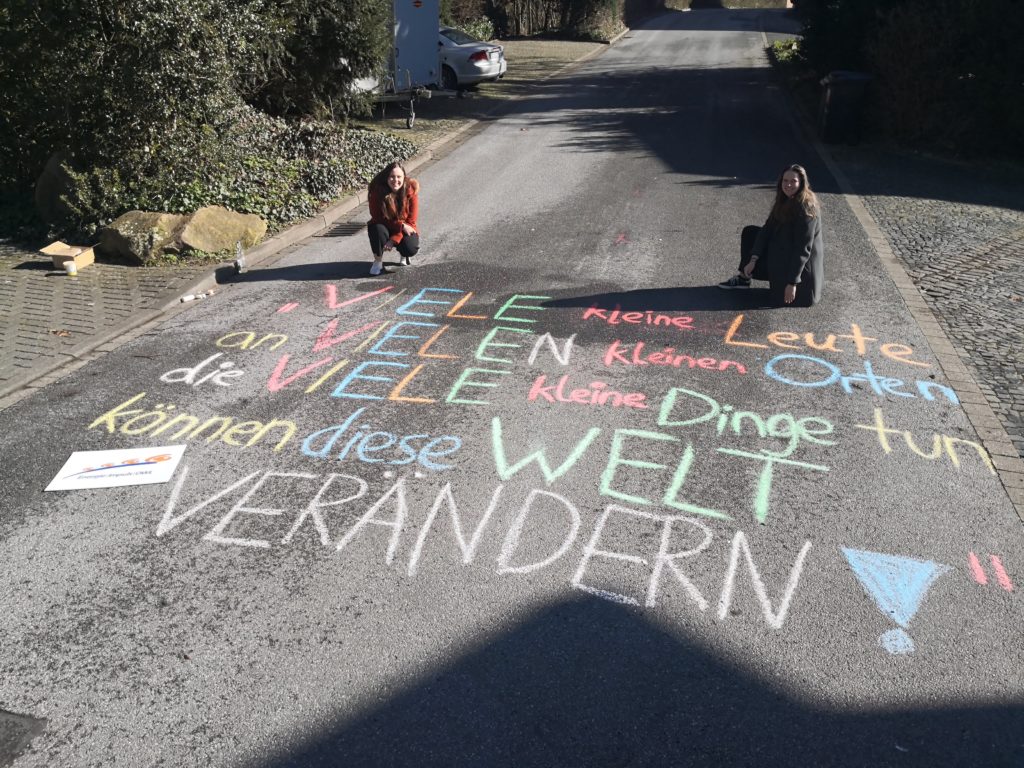 "VIELE kleine Leute
an VIELEN kleinen Orten
die VIELE kleine Dinge tun
können diese WELT
VERÄNDERN!"